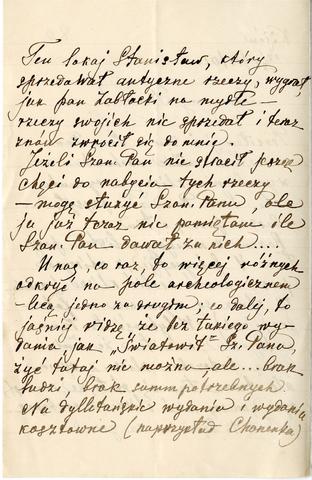 Ten lokaj Stanisław, który
sprzedawał antyczne rzeczy, wygrał
jak pan Zabłocki na mydle —
rzeczy swoich nie sprzedał i teraz
znow zwrócił się do mnie.
Jeżeli Szan. Pan nie stracił jeszcze
chęci do nabycia tych rzeczy
— mogę służyć Szan. Panu, ale
ja już teraz nie pamiętam ile
Szan. Pan dawał za nich....
U nas, co raz, to więcej różnych
odkryć na pole archeologicznem
— lecą jedno za drugim; co dalej, to
jaśniej widzę, że bez takiego wy-
dania jak „Światowit" Sz. Pana
żyć tutaj nie można, ale... brak
ludzi, brak summ potrzebnych.
Na dylletańskie wydania i wydania
kosztowne (naprzykład Chonenka)